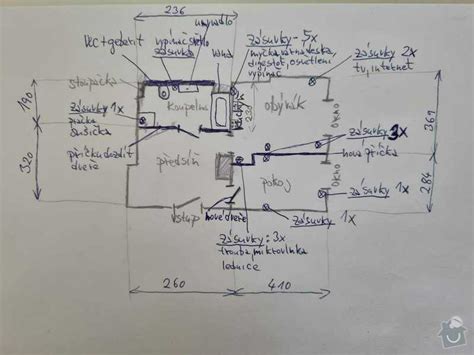 236
umyvadlo
wc+geberit
vypínač
zásuvka
vana
zásuvky - 5x
myčka, varná deska,
digestoř, osvětlení
vypínač
zásuvky 2x
tv, internet
stoupačka
190
zásuvky 1x
pračka
sušička
koupelna
obývák
okno
361
zásuvky 3x
nová příčka
320
příčku dozdít
dveře
předsíň
pokoj
okno
284
zásuvky 1x
vstup
nové dveře
zásuvky
1x
zásuvky: 3x
trouba, mikrovlnka
lednice
260
410